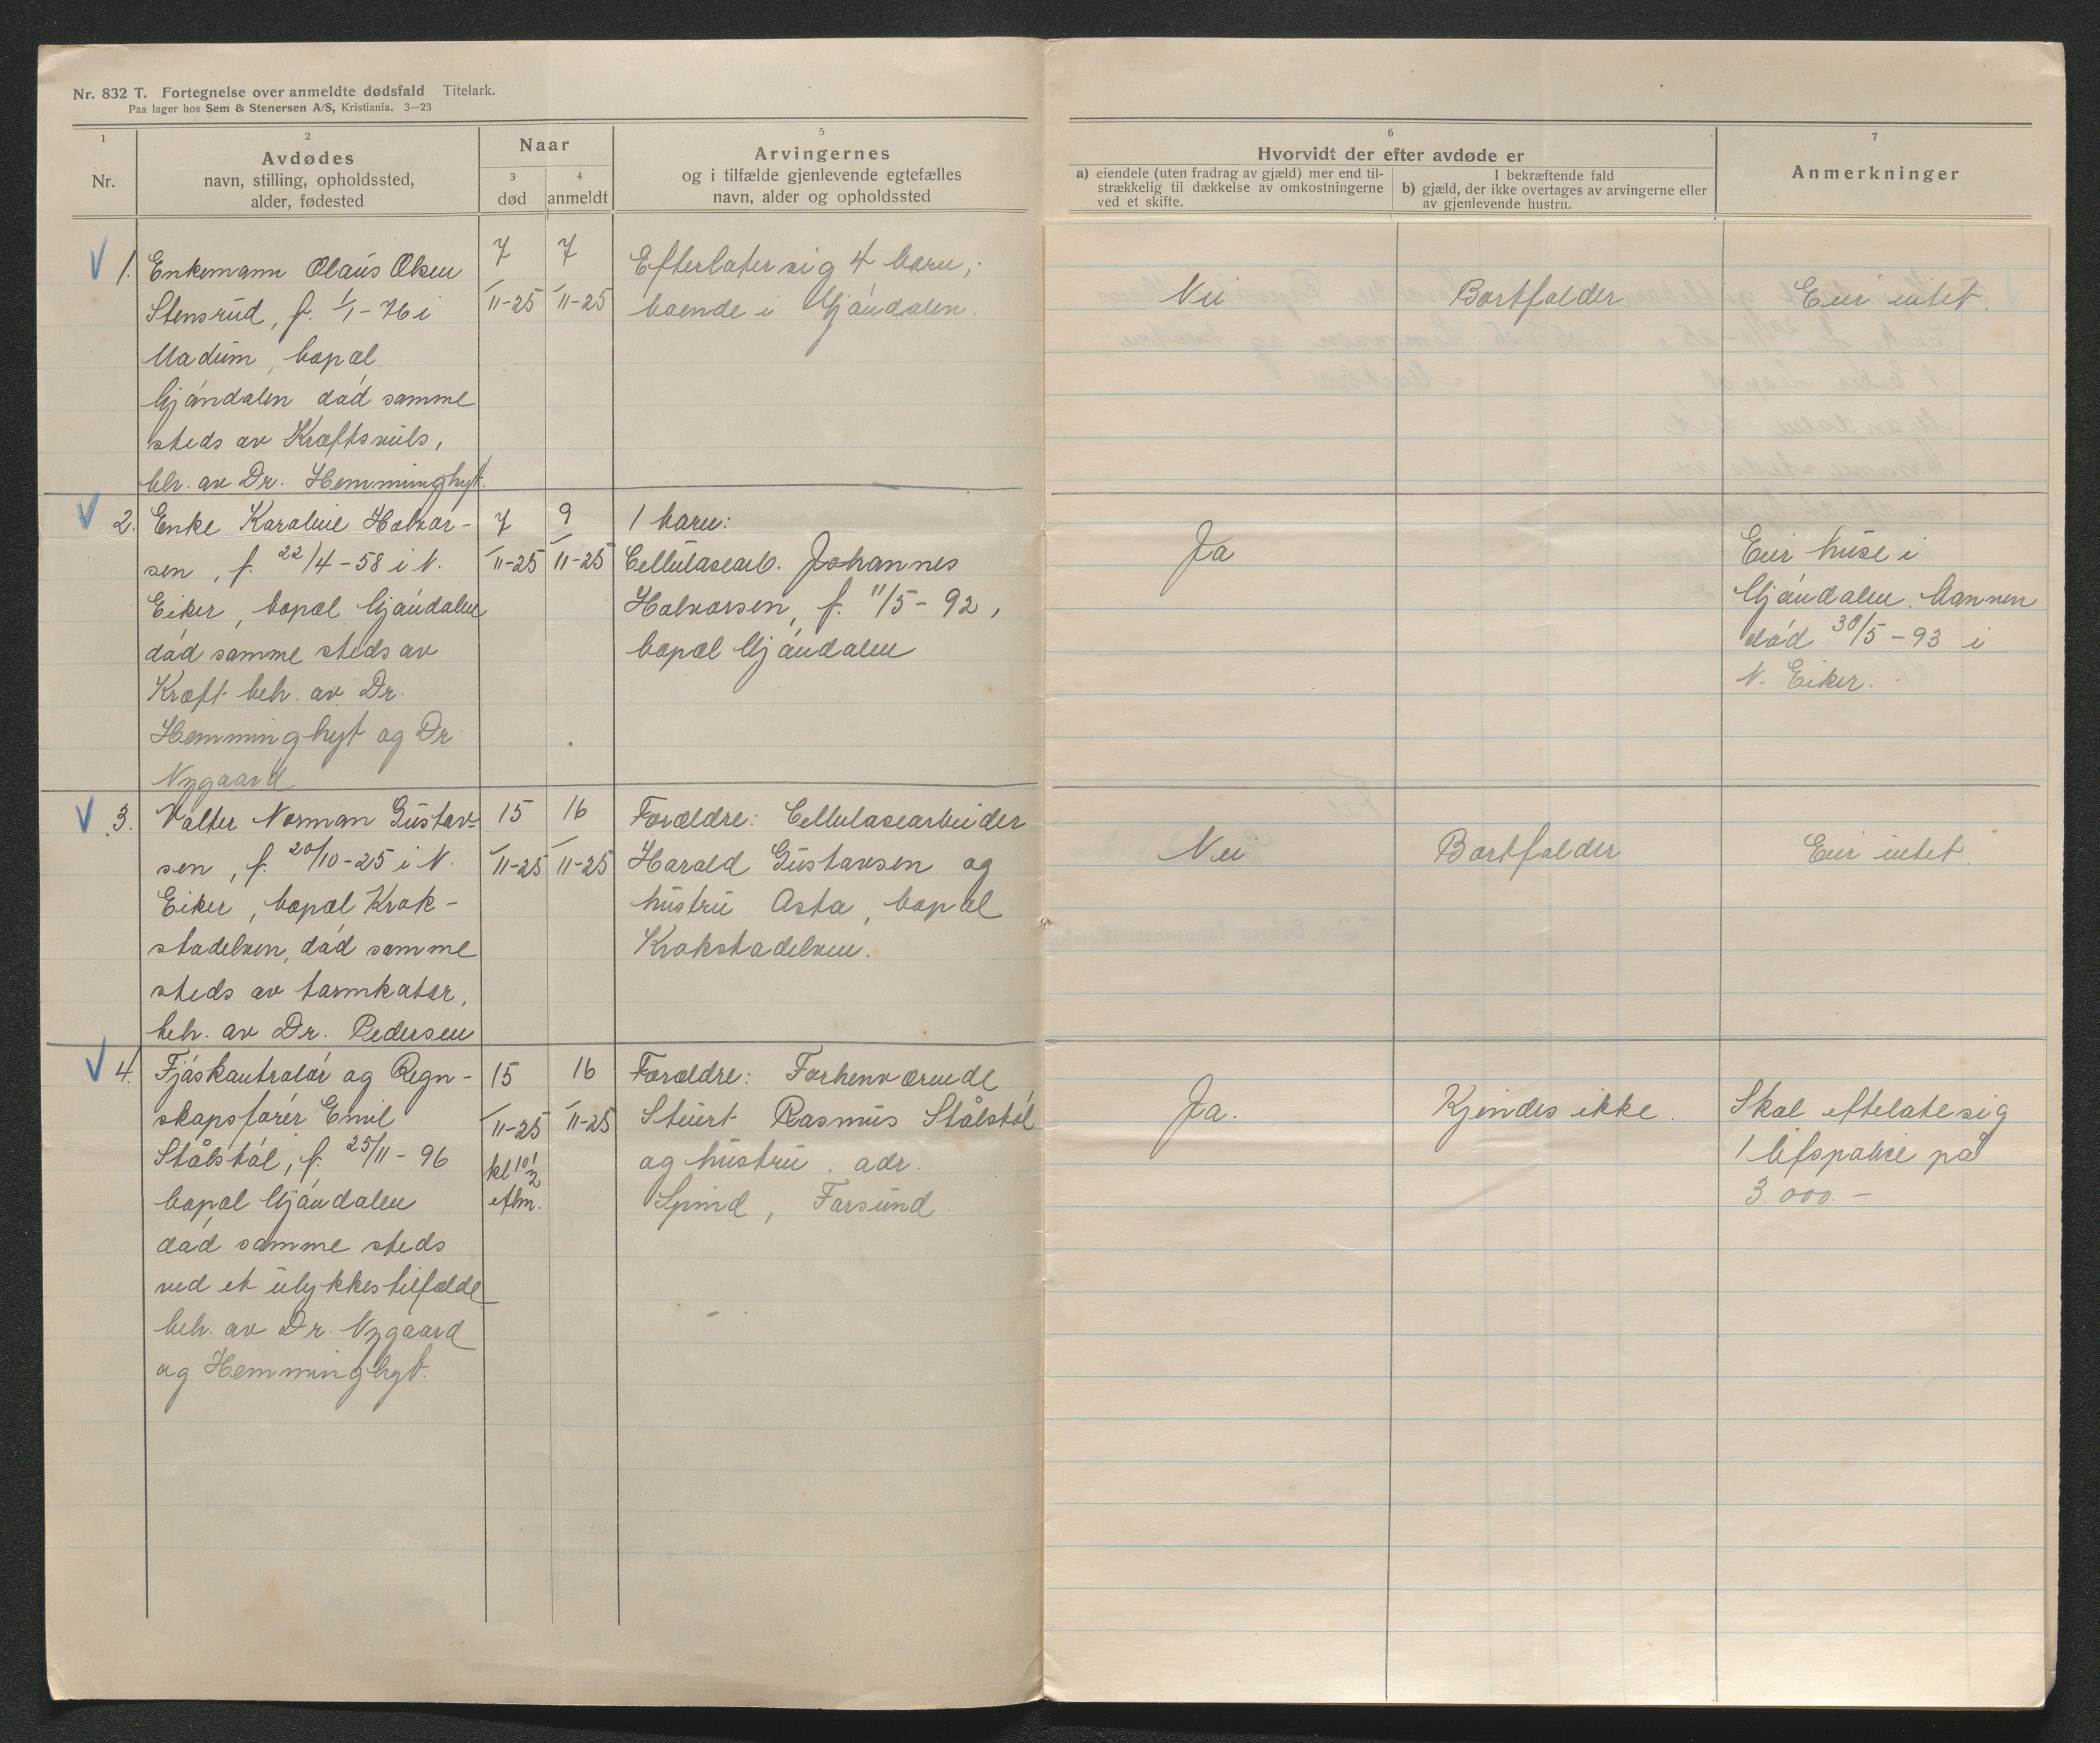 Nr. 832 T. Fortegnelse over anmeldte dødsfald Titelark.
Paa lager hos Sem & Stenersen A/S, Kristiania. 3—23
1
Nr.
2
Avdødes
navn, stilling, opholdssted,
alder, fødested
Naar
3
død
4
anmeldt
5
Arvingernes
og i tilfælde gjenlevende egtefælles
navn, alder og opholdssted
6
Hvorvidt der efter avdøde er
a) eiendele (uten fradrag av gjæld) mer end til-
strækkelig til dækkelse av omkostningerne
ved et skifte.
I bekræftende fald
b) gjæld, der ikke overtages av arvingerne eller
av gjenlevende hustru.
7
Anmerkninger
1.
Enkemann Olaus Olsen
Stensrud, f. 1/1-76 i
Modum, bopæl
Mjøndalen død samme
steds av Kræftsvuls,
beh. av Dr. Hemminghyt.
7/11-25
7/11-25
Efterlater sig 4 barn,
boende i Mjøndalen.
Nei
Bortfalder
Eier intet.
2.
Enke Karoline Halvor-
sen, f. 22/4-58 i N.
Eiker, bopæl Mjøndalen
død samme steds av
Kræft beh. av Dr.
Hemminghyt og Dr
Nygaard
7/11-25
9/11-25
1 barn:
Cellulosearb. Johannes
Halvorsen, f. 11/5-92,
bopæl Mjøndalen
Ja
Eier huse i
Mjøndalen. Mannen
død 30/5-93 i
N. Eiker.
3.
Valter Norman Gustav-
sen, f. 20/10-25 i N.
Eiker, bopæl Krok-
stadelven, død samme
steds av tarmkatar,
beh. av Dr. Pedersen
15/11-25
16/11-25
Forældre: Cellulosearbeider
Harald Gustavsen og
hustru Asta, bopæl
Krokstadelven.
Nei
Bortfalder
Eier intet.
4.
Fjøskontrolør og Regn-
skapsfører Emil
Stålstøl, f. 25/11-96
bopæl Mjøndalen
død samme steds
ved et ulykkestilfælde
beh. av Dr. Nygaard
og Hemminghyt.
15/11-25
kl 10 1/2
eftm.
16/11-25
Forældre: Forhenværende
Stuert Rasmus Stålstøl
og hustru. adr.
Spind, Farsund.
Ja.
Kjendes ikke.
Skal efterlate sig
1 lifspolise på
3.000.-